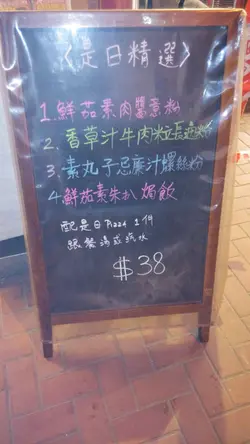 〈是日精選〉
1.鮮茄素肉醬意粉
2.香草汁牛肉粒長通粉
3.素丸子忌廉汁螺絲粉
4.鮮茄素朱扒焗飯
配是日Pizza 1件
跟餐湯或汽水
$38